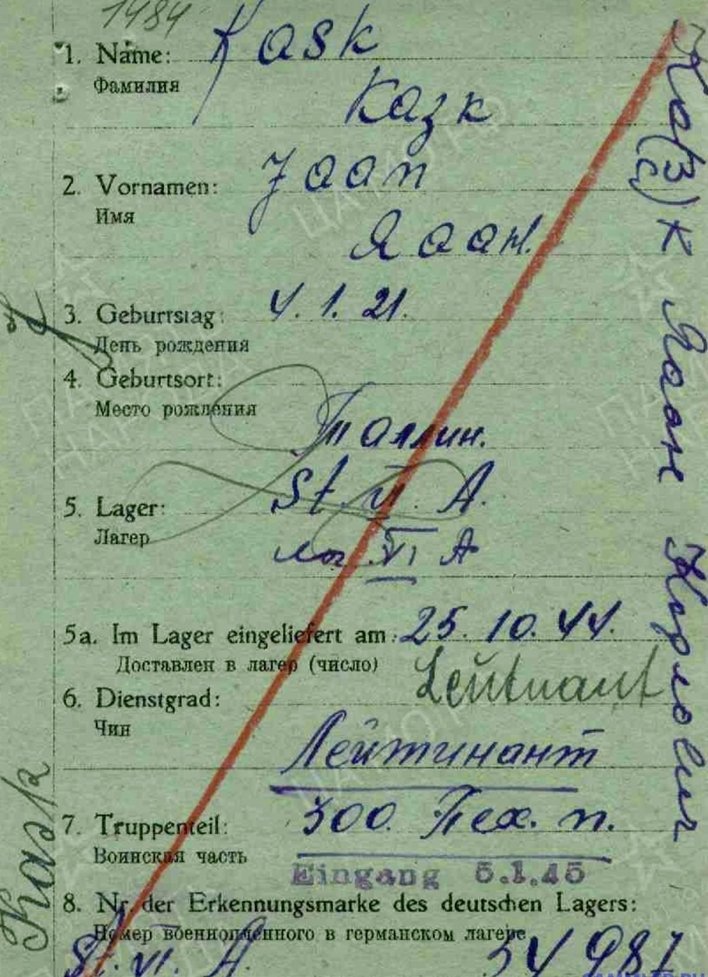 1484
1. Name: Kask
Фамилия
Казк
2. Vornamen: Jaan
Имя
Яаан.
3. Geburtstag: 4. 1. 21.
День рождения
4. Geburtsort:
Место рождения
Таллин.
5. Lager: St. VI. A.
Лагер
лаг VI A
5a. Im Lager eingeliefert am: 25. 10. 44.
Доставлен в лагер (число)
Leutnant
6. Dienstgrad:
Чин
Лейтинант
7. Truppenteil: 300. Пех. п.
Воинская часть
Eingang 5.1.45
8. Nr. der Erkennungsmarke des deutschen Lagers:
Номер военнопленного в германском лагере
St. VI. A.
Ка(з)к Яаан Карлович
Kask